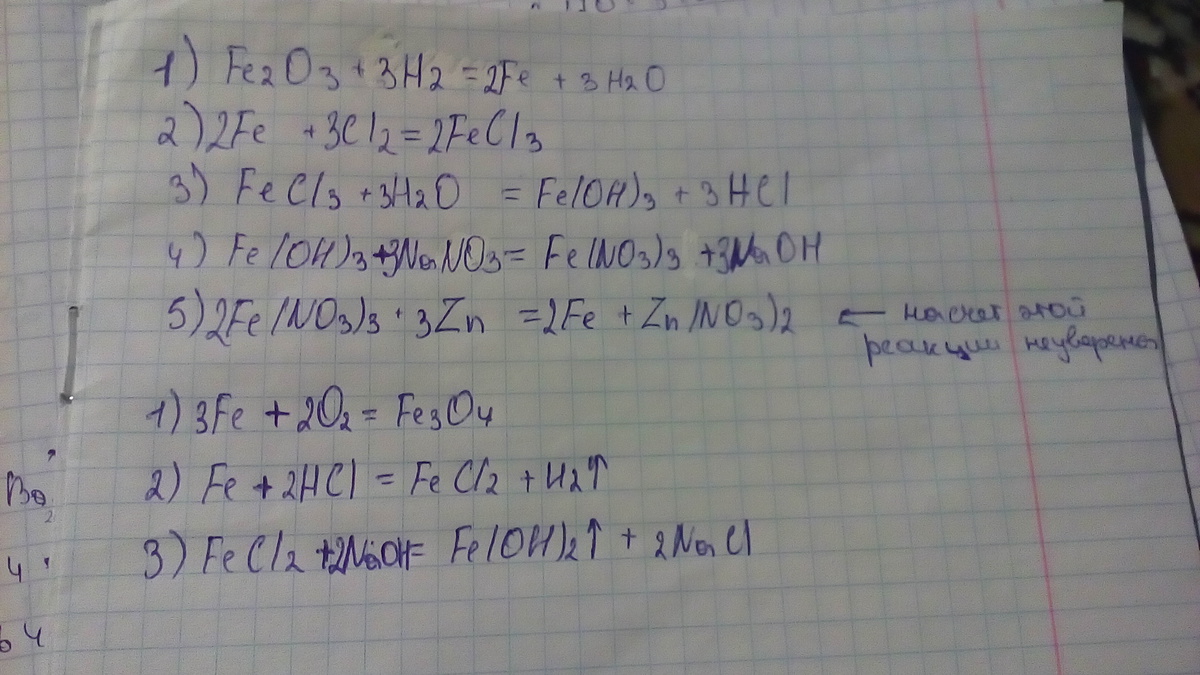 1) Fe2O3 + 3H2 = 2Fe + 3H2O
2) 2Fe + 3Cl2 = 2FeCl3
3) FeCl3 + 3H2O = Fe(OH)3 + 3HCl
4) Fe(OH)3 + 3NaNO3 = Fe(NO3)3 + 3NaOH
5) 2Fe(NO3)3 + 3Zn = 2Fe + Zn(NO3)2 ← насчет этой
реакции неуверена
1) 3Fe + 2O2 = Fe3O4
2) Fe + 2HCl = FeCl2 + H2↑
3) FeCl2 + 2NaOH = Fe(OH)2↑ + 2NaCl